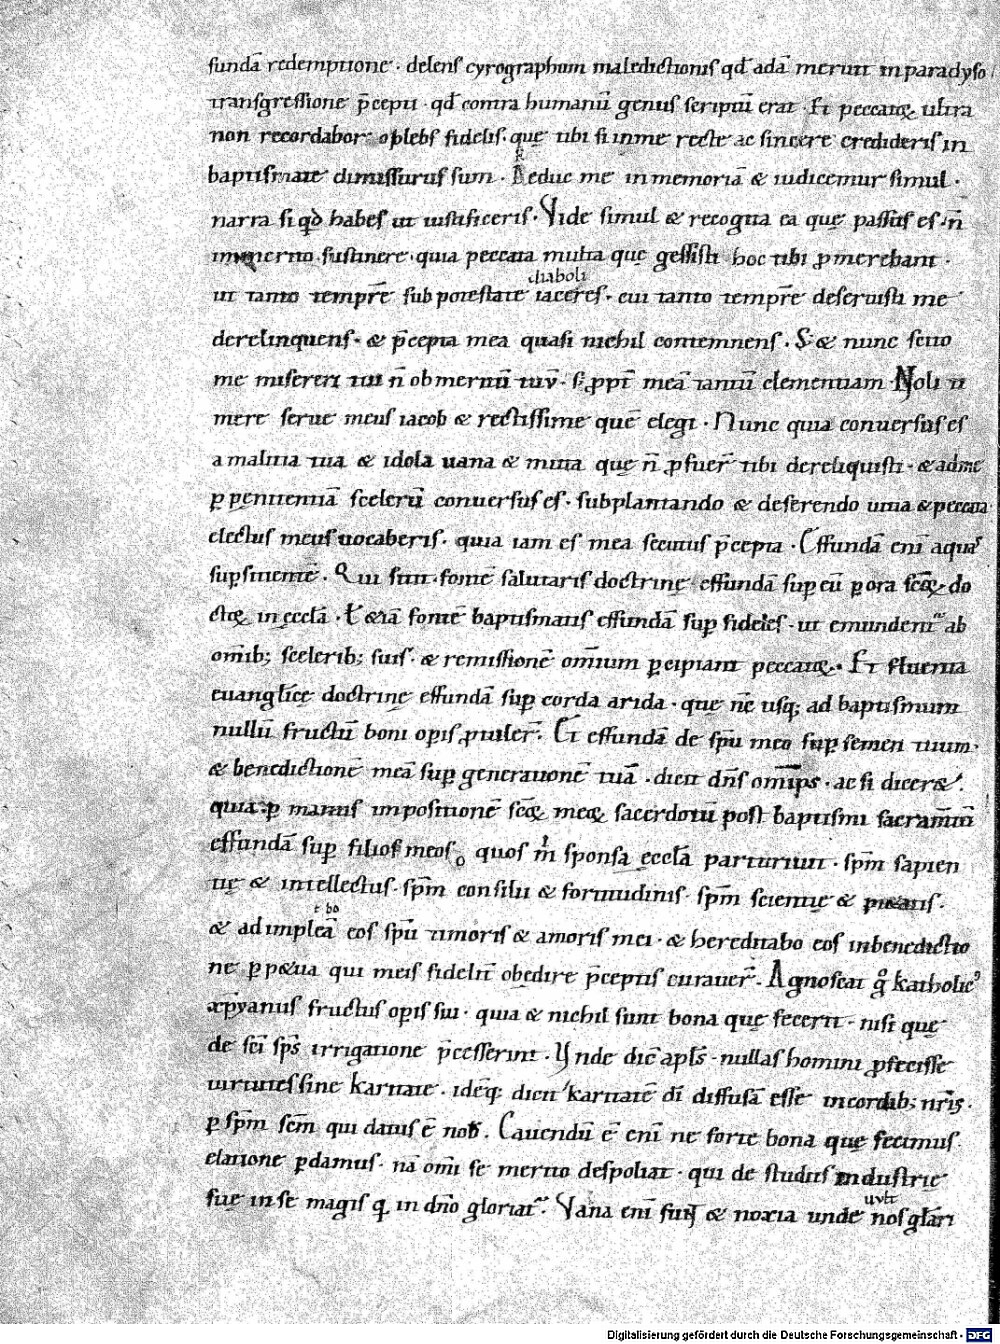 fundā redemptione · delens cyrographum maledictionis qđ adā meruit in paradyso
transgressione p̄cepti · qđ contra humanū genus scriptū erat · Et peccatoꝝ ultra
non recordabor · o plebs fidelis · quę tibi si in me recte ac sincere credideris in
baptismate dimissurus sum · Reduc me in memoriā & iudicemur simul ·
narra si qđ habes ut iustificeris · Vide simul & recogita ea quę passus es · n̄
inmerito sustinere · quia peccata multa quę gessisti hoc tibi ꝓmerebant ·
diaboli
ut tanto tempr̄e sub potestate iaceres · cui tanto tempr̄e deseruisti me
derelinquens · & p̄cepta mea quasi nichil contemnens · S; & nunc scito
me misereri tui n̄ ob meritū tuū · s; ꝓpt̄ meā tantū clementiam Noli ti
mere serue meus iacob & rectissime quē elegi · Nunc quia conuersus es
a malitia tua & idola uana & muta quę n̄ ꝓfuer̄ tibi dereliquisti · & ad me
ꝑ penitentiā scelerū conuersus es · subplantando & deserendo uitia & peccata
electus meus uocaberis · quia iam es mea secutus p̄cepta · Effundā eni aquas
sup sitientē · Qui sitit fontē salutaris doctrinę effundā sup eū ꝑ ora scōꝝ do
ctoꝝ in ęcclā · & etiā fontē baptismatis effundā sup fideles · ut emundent̃ ab
omib; scelerib; suis · & remissionē omium ꝑcipiant peccatoꝝ · Et fluenta
euanglicę doctrinę effundā sup corda arida · quę nc̄ usq; ad baptismum
nullū fructū boni opis ꝓtuler̄ · Et effundā de spū meo sup semen tuum ·
& benedictionē meā sup generationē tuā · dicit dn̄s omīps · ac si diceret ·
quia ꝑ manus impositionē scōꝝ meoꝝ sacerdotū post baptismi sacramtū
effundā sup filios meos quos m̄ sponsa ęcclā parturiuit · spm̄ sapien
tię & intellectus · spm̄ consilii & fortitudinis · spm̄ scientię & pietatis ·
e bo
& ad impleā eos spū timoris & amoris mei · & hereditabo eos in benedictio
ne ꝑpetua qui meis fideliť obędire p̄ceptis curauer̄ · Agnoscat g̊ katholic9
xp̄ianus fructus opis sui · quia & nichil sunt bona quę fecerit · nisi quę
de sc̄i sps̄ irrigatione p̄cesserint · Vnde dic̄ apls̄ · nullas homini ꝓfecisse
uirtutes sine karitate · ideoq; dicit karitatē dī diffusā esse in cordib; nr̄is ·
ꝑ spm̄ scm̄ qui datus ē nob̄ · Cauendū ē eni ne forte bona quę fecimus
elatione ꝑdamus · nā omi se merito despoliat · qui de studiis industrię
suę in se magis q̄ in dn̄o gloriat̃ · Vana eni sunt & noxia unde nos glari